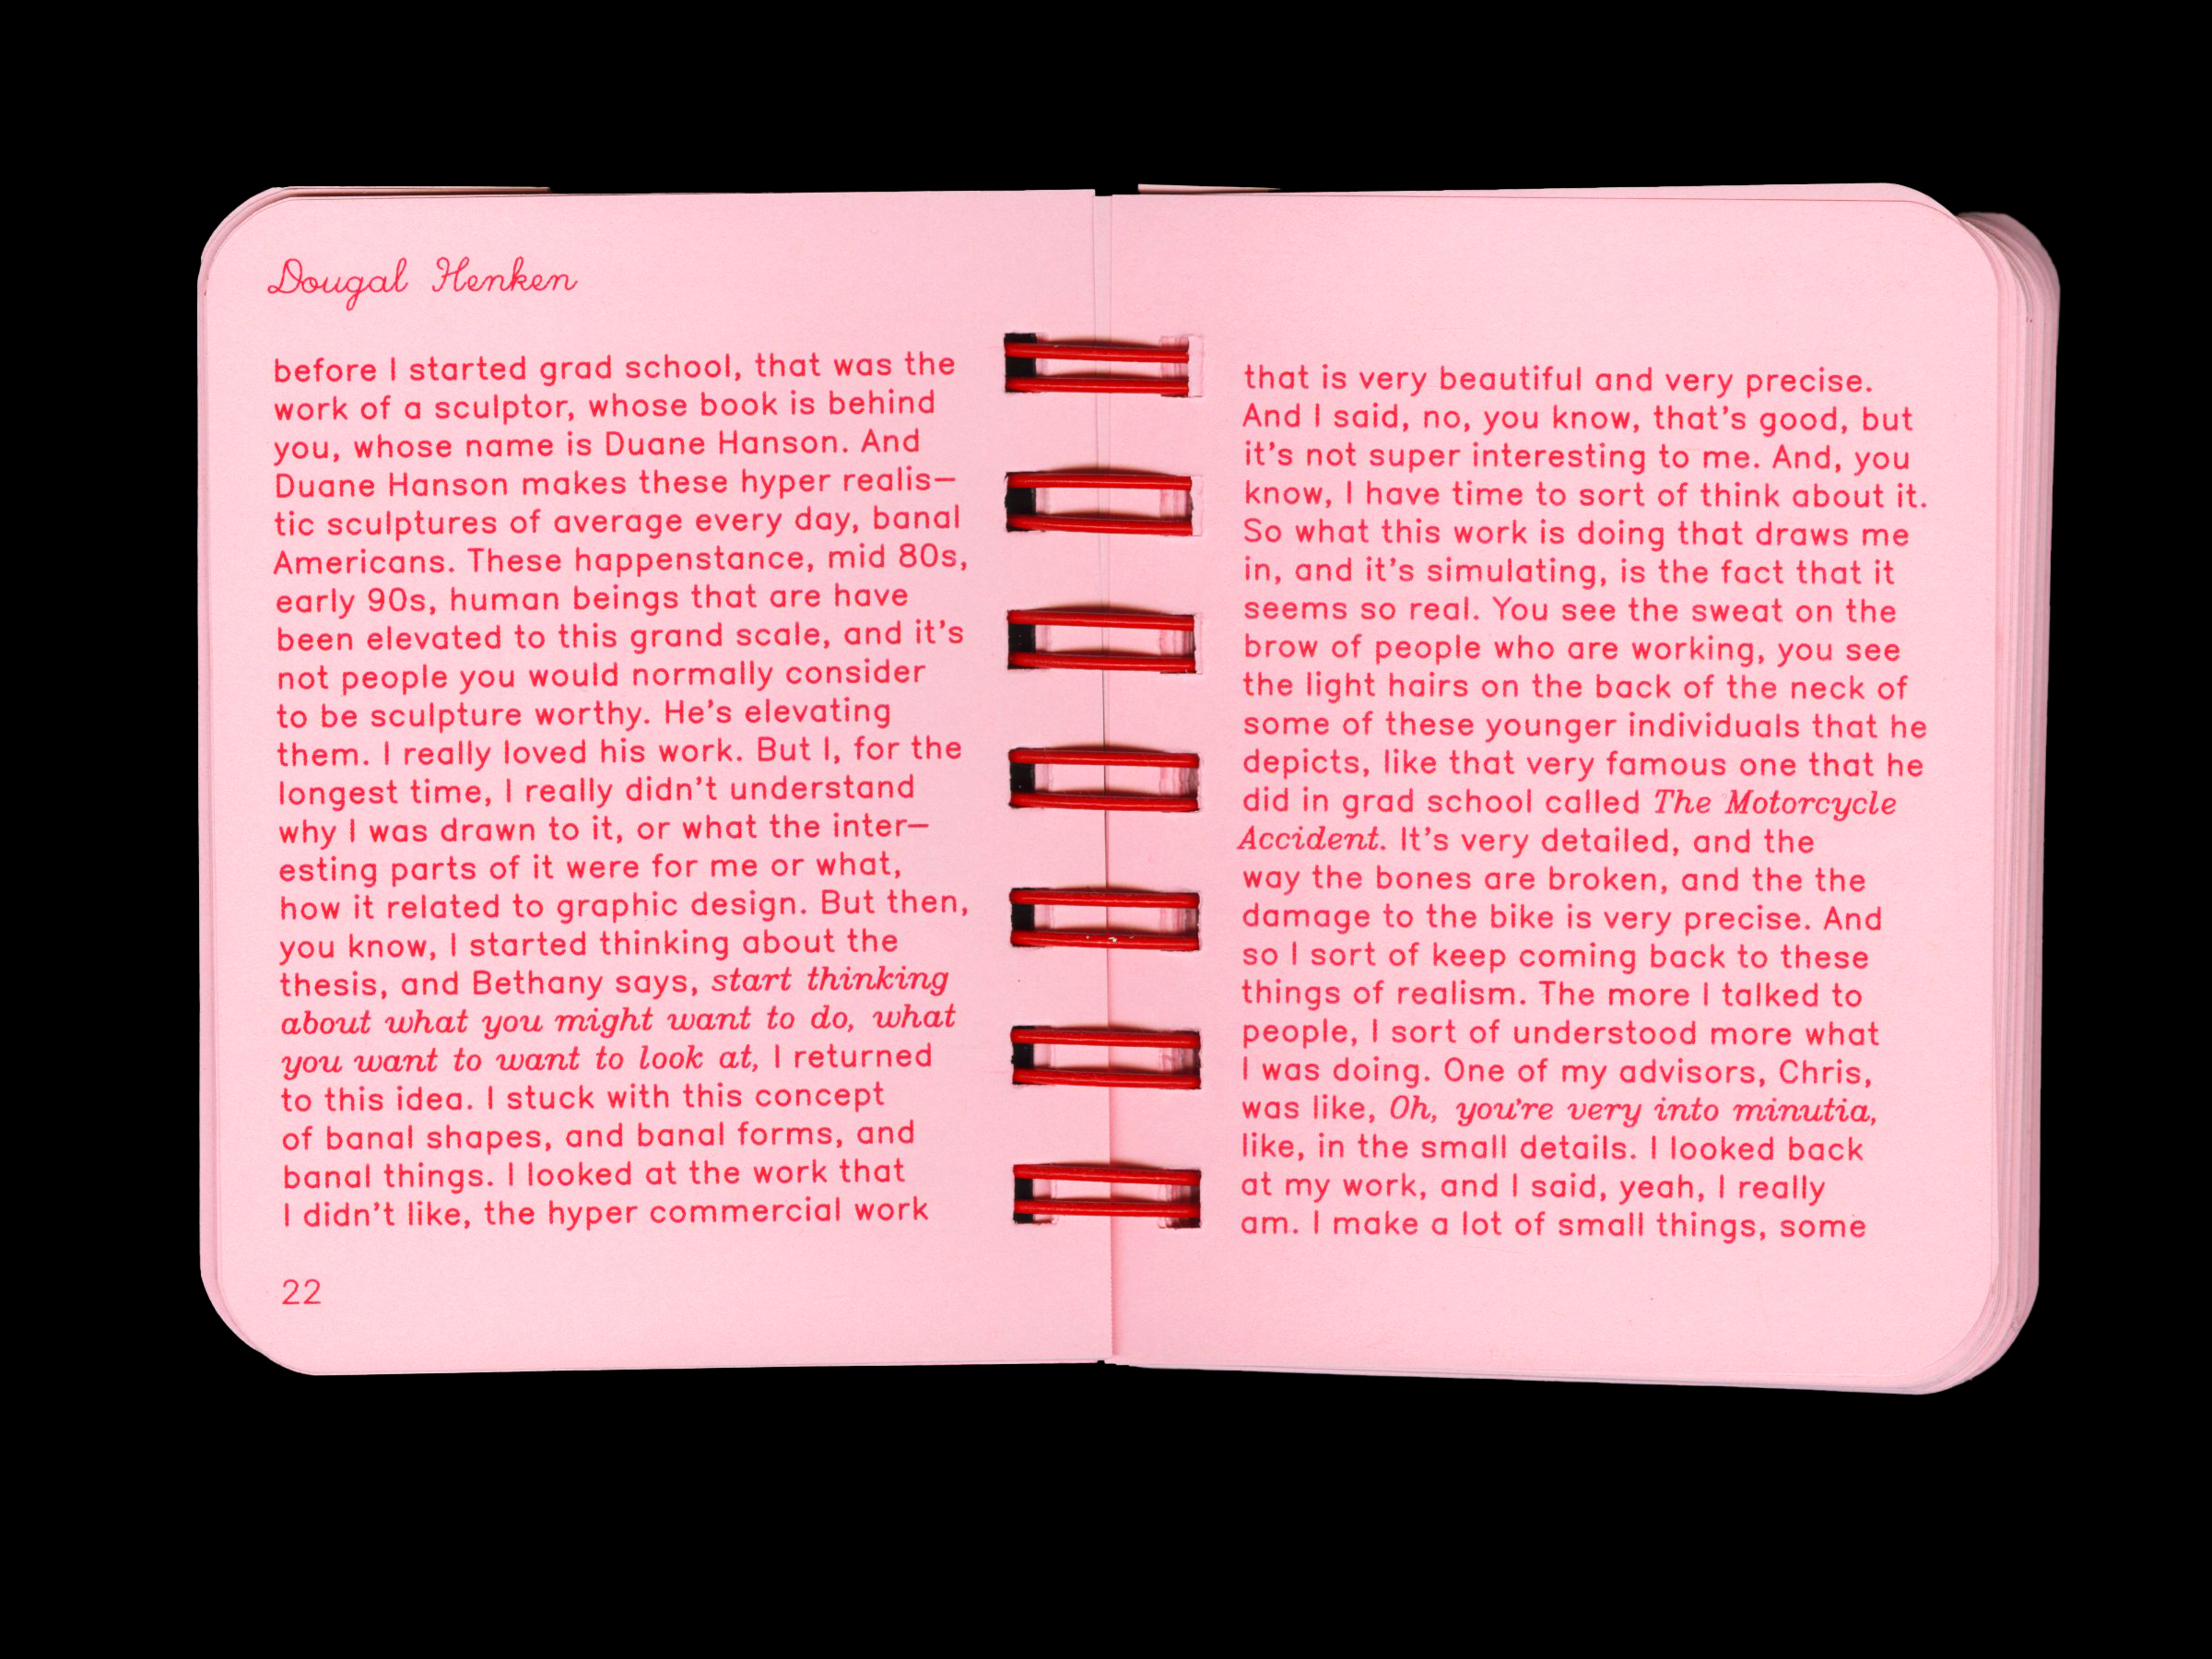 Dougal Henken
before I started grad school, that was the
work of a sculptor, whose book is behind
you, whose name is Duane Hanson. And
Duane Hanson makes these hyper realis–
tic sculptures of average every day, banal
Americans. These happenstance, mid 80s,
early 90s, human beings that are have
been elevated to this grand scale, and it's
not people you would normally consider
to be sculpture worthy. He's elevating
them. I really loved his work. But I, for the
longest time, I really didn't understand
why I was drawn to it, or what the inter–
esting parts of it were for me or what,
how it related to graphic design. But then,
you know, I started thinking about the
thesis, and Bethany says, start thinking
about what you might want to do, what
you want to want to look at, I returned
to this idea. I stuck with this concept
of banal shapes, and banal forms, and
banal things. I looked at the work that
I didn't like, the hyper commercial work
22
that is very beautiful and very precise.
And I said, no, you know, that's good, but
it's not super interesting to me. And, you
know, I have time to sort of think about it.
So what this work is doing that draws me
in, and it's simulating, is the fact that it
seems so real. You see the sweat on the
brow of people who are working, you see
the light hairs on the back of the neck of
some of these younger individuals that he
depicts, like that very famous one that he
did in grad school called The Motorcycle
Accident. It's very detailed, and the
way the bones are broken, and the the
damage to the bike is very precise. And
so I sort of keep coming back to these
things of realism. The more I talked to
people, I sort of understood more what
I was doing. One of my advisors, Chris,
was like, Oh, you're very into minutia,
like, in the small details. I looked back
at my work, and I said, yeah, I really
am. I make a lot of small things, some